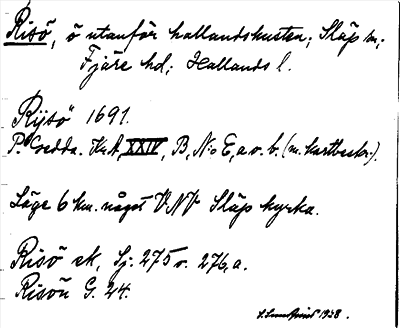 Risö, ö utanför hallandskusten; Släp sn;
Fjäre hd; Hallands l.
Rÿsö 1691.
P. Gedda. Krt. XXIV, B, N:o E, a o. b. (m. kartbeskr.).
Läge 6 km. något V. NV Släp kyrka.
Risö ek, Sj. 275 o. 276, a.
Risön G. 24.
1928.